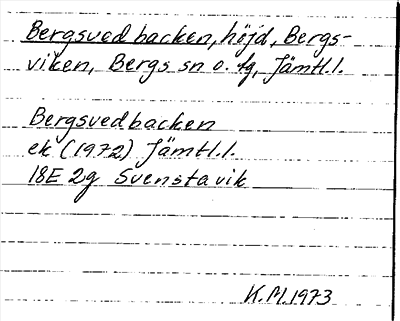 Bergsvedbacken, höjd, Bergs-
viken, Bergs sn o. tg, Jämtl.l.
Bergsvedbacken
ek (1972) Jämtl.l.
18E 2g Svenstavik
K.M.1973